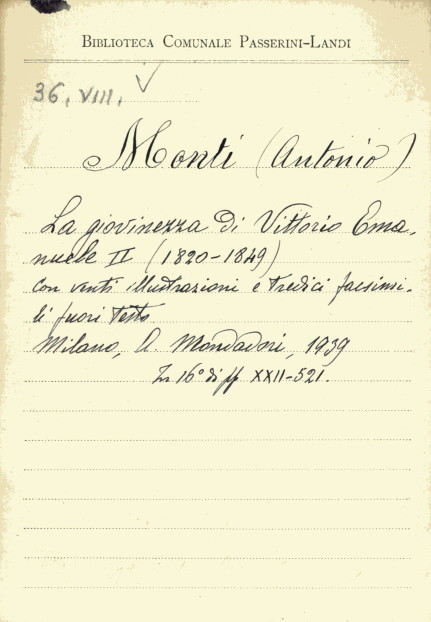 BIBLIOTECA COMUNALE PASSERINI-LANDI
36. VIII.
Monti (Antonio)
La giovinezza di Vittorio Ema-
nuele II (1820-1849)
con venti illustrazioni e tredici facsimi-
li fuori testo
Milano, A. Mondadori, 1939
In 16° di pp XXII-521.